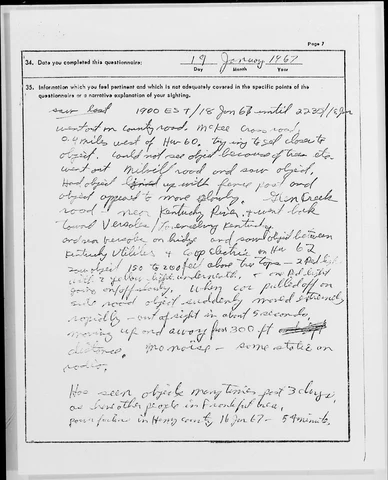 Page 7
34. Date you completed this questionnaire: 19 January 1967
Day Month Year
35. Information which you feel pertinent and which is not adequately covered in the specific points of the
questionnaire or a narrative explanation of your sighting.
1900 EST/18 Jan 67 until 2230/18 Jan
went out on county road. McKee Cross road
0.4 miles west of Hwy 60. trying to get close to
object. Could not see object because of trees etc.
went out road and saw object.
Had object lined up with fence post and
object appeared to move slowly. Glenn Creek
road near Kentucky River, & went back
toward Versailles Kentucky
on bridge and saw object between
Kentucky Utilities & Co-op Electric on Hwy 62
object 150 to 200 feet above tree tops - 2 Red light
with 2 yellow light underneath, & one Red light
on/off. When car pulled off on
side road object suddenly moved extremely
rapidly - out of sight in about 5 seconds,
moving up and away from 300 ft
distance. No noise - some static on
radio.
Has seen objects many times past 3 days,
as have other people in Frankfurt area.
power failure in Henry county 16 Jan 67 - 59 minutes.